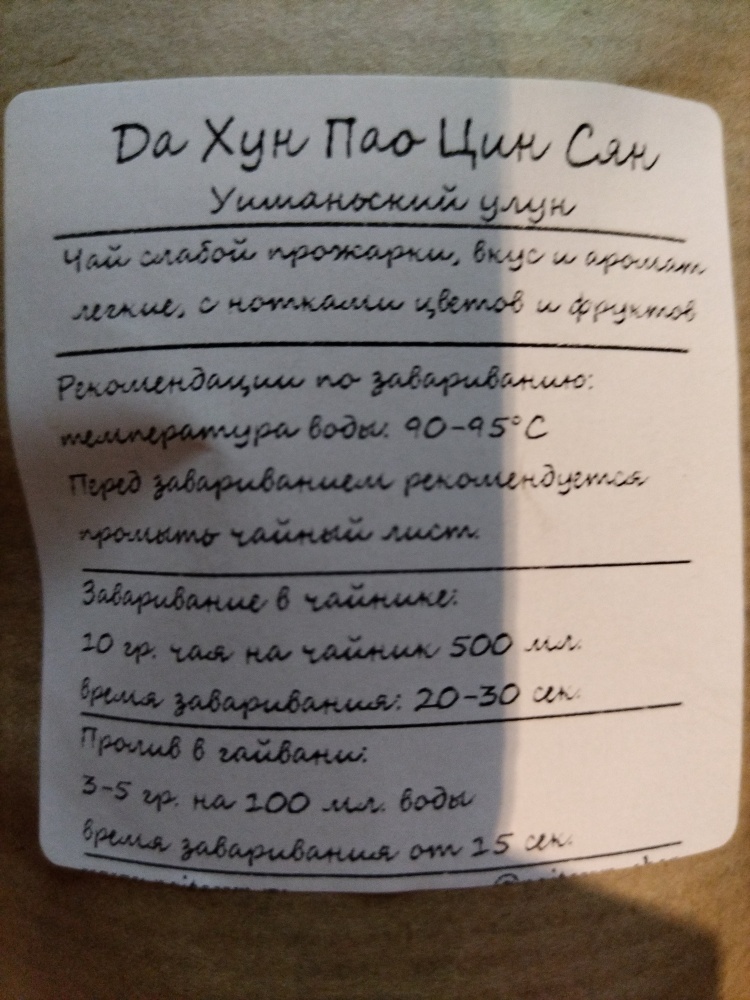 Да Хун Пао Цин Сян
Уишаньский улун
Чай слабой прожарки, вкус и аромат
легкие, с нотками цветов и фруктов
Рекомендации по завариванию:
температура воды: 90-95°C
Перед завариванием рекомендуется
промыть чайный лист.
Заваривание в чайнике:
10 гр. чая на чайник 500 мл.
время заваривания: 20-30 сек.
Пролив в гайвани:
3-5 гр. на 100 мл. воды
время заваривания от 15 сек.